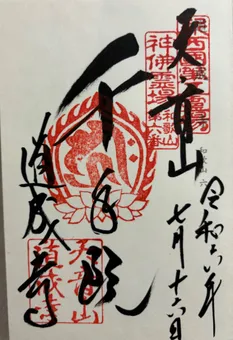 天音山
千手
道成寺
令和六年
七月十六日
神佛霊場
和歌山
第六番
和歌山 六
天音山
道成寺